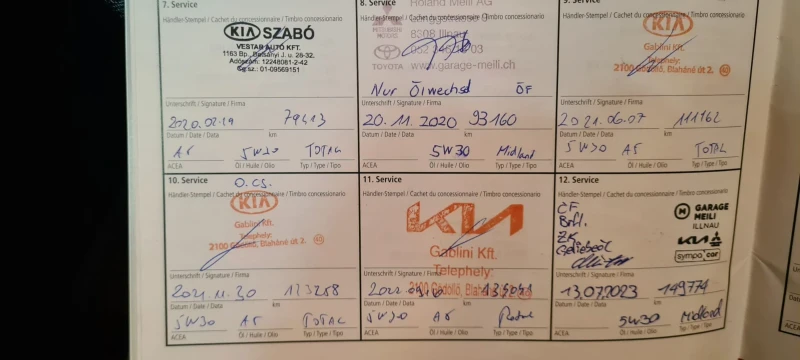 7. Service
Händler-Stempel / Cachet du concessionnaire / Timbro concessionario
KIA SZABÓ
VESTAR AUTÓ KFT.
1163 Bp., Batsányi J. u. 28-32.
Adószám: 12248081-2-42
Cg.sz.: 01-09569151
Unterschrift / Signature / Firma
2020.02.19 79413
Datum / Date / Data km
A5 5W30 TOTAL
ACEA Öl / Huile / Olio Typ / Type / Tipo
8. Service
Holand Meili AG
Händler-Stempel / Cachet du concessionnaire / Timbro concessionario
MITSUBISHI MOTORS
8308 Illnau
TOYOTA
www.garage-meili.ch
Nur Ölwechsel ÖF
Unterschrift / Signature / Firma
20.11.2020 93160
Datum / Date / Data km
5W30 Midland
ACEA Öl / Huile / Olio Typ / Type / Tipo
9. Service
Händler-Stempel / Cachet du concessionnaire / Timbro concessionario
KIA
Gablini Kft.
Telephely:
2100 Gödöllő, Blaháné út 2.
Unterschrift / Signature / Firma
2021.06.07 111162
Datum / Date / Data km
5W30 A5 TOTAL
ACEA Öl / Huile / Olio Typ / Type / Tipo
10. Service
O.CS.
Händler-Stempel / Cachet du concessionnaire / Timbro concessionario
KIA
Gablini Kft.
Telephely:
2100 Gödöllő, Blaháné út 2.
Unterschrift / Signature / Firma
2021.11.30 123258
Datum / Date / Data km
5W30 A5 TOTAL
ACEA Öl / Huile / Olio Typ / Type / Tipo
11. Service
Händler-Stempel / Cachet du concessionnaire / Timbro concessionario
KIA
Gablini Kft.
Telephely:
2100 Gödöllő, Blaháné út 2.
Unterschrift / Signature / Firma
Datum / Date / Data km
5W30 A5
ACEA Öl / Huile / Olio Typ / Type / Tipo
12. Service
Händler-Stempel / Cachet du concessionnaire / Timbro concessionario
CF
Brfl.
ZK
GARAGE
MEILI
ILLNAU
KIA
sympacar
Unterschrift / Signature / Firma
13.07.2023 149774
Datum / Date / Data km
5W30 Midland
ACEA Öl / Huile / Olio Typ / Type / Tipo